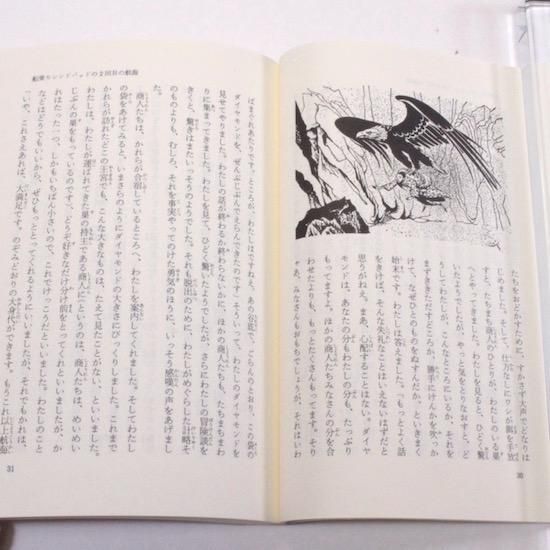 たちをおどかすために、すかさず大声でどなりは
じめました。そして、仕方なしにワシが餌を手放
すと、たちまち商人のひとりが、わたしのいる巣
へとやってきました。わたしを見ると、ひどく驚
いたようすでしたが、やっと気をとりなおすと、ど
うしてわたしが、こんなところにいるか、それを
まずききただすどころか、勝手にけんかを吹っか
けて、なぜひとのものをぬすんだか、といきまく
始末です。わたしは答えました。「もっとよく話
をきけば、そんな失礼なことはいえないはずだと
思うがねえ。まあ、心配することはない。ダイヤ
モンドは、あなたの分もわたしの分も、たっぷり
もってますよ。ほかの商人たちみなさんの分を合
わせたよりも、もっとたくさんあるんです。そり
ゃあ、みなさんもおもちでしょうが、それはいわ
30
船乗りシンドバッドの2回目の航海
ばまぐれあたりです。ところが、わたしはですねえ、あの谷底で、ごらんのとおり、この袋の
ダイヤモンドを、ぜんぶじぶんでえらんできたのです」そういって、わたしのダイヤモンドを
見せてやりました。わたしの話が終わるか終わらないかに、ほかの商人たちも、たちまちまわ
りに集まってきました。わたしを見て、ひどく驚いたようでしたが、さらにわたしの冒険談を
きくと、驚きはまたいっそうのようでした。それも脱出のために、わたしがめぐらした計略そ
のものよりも、むしろ、それを事実やってのけた勇気のほうに、いっそう感嘆の声をあげまし
た。
商人たちは、かれらが合宿しているところへ、わたしを案内してくれました。そしてわたし
の袋をあけてみると、いまさらのようにダイヤモンドの大きさにびっくりしました。これまで
かれらが訪れたどこの王宮でも、こんな大きなものは、たえて見たことがない、といいました。
わたしは、わたしが運ばれてきた巣の持主である商人に（というのは、商人たちは、めいめい
じぶんの巣をもっているのです）、どうぞ好きなだけ分け前をとってくれといいましたが、か
れはたった一つ、しかもいちばん小さいので、これでけっこうだといいました。わたしのこと
などはどうでもいいから、ぜひもっととってくれるようにいいましたが、それでもかれは、
「いや、これさえあれば、大満足です。のぞみどおりの大身代ができます。もうこれ以上航海
31